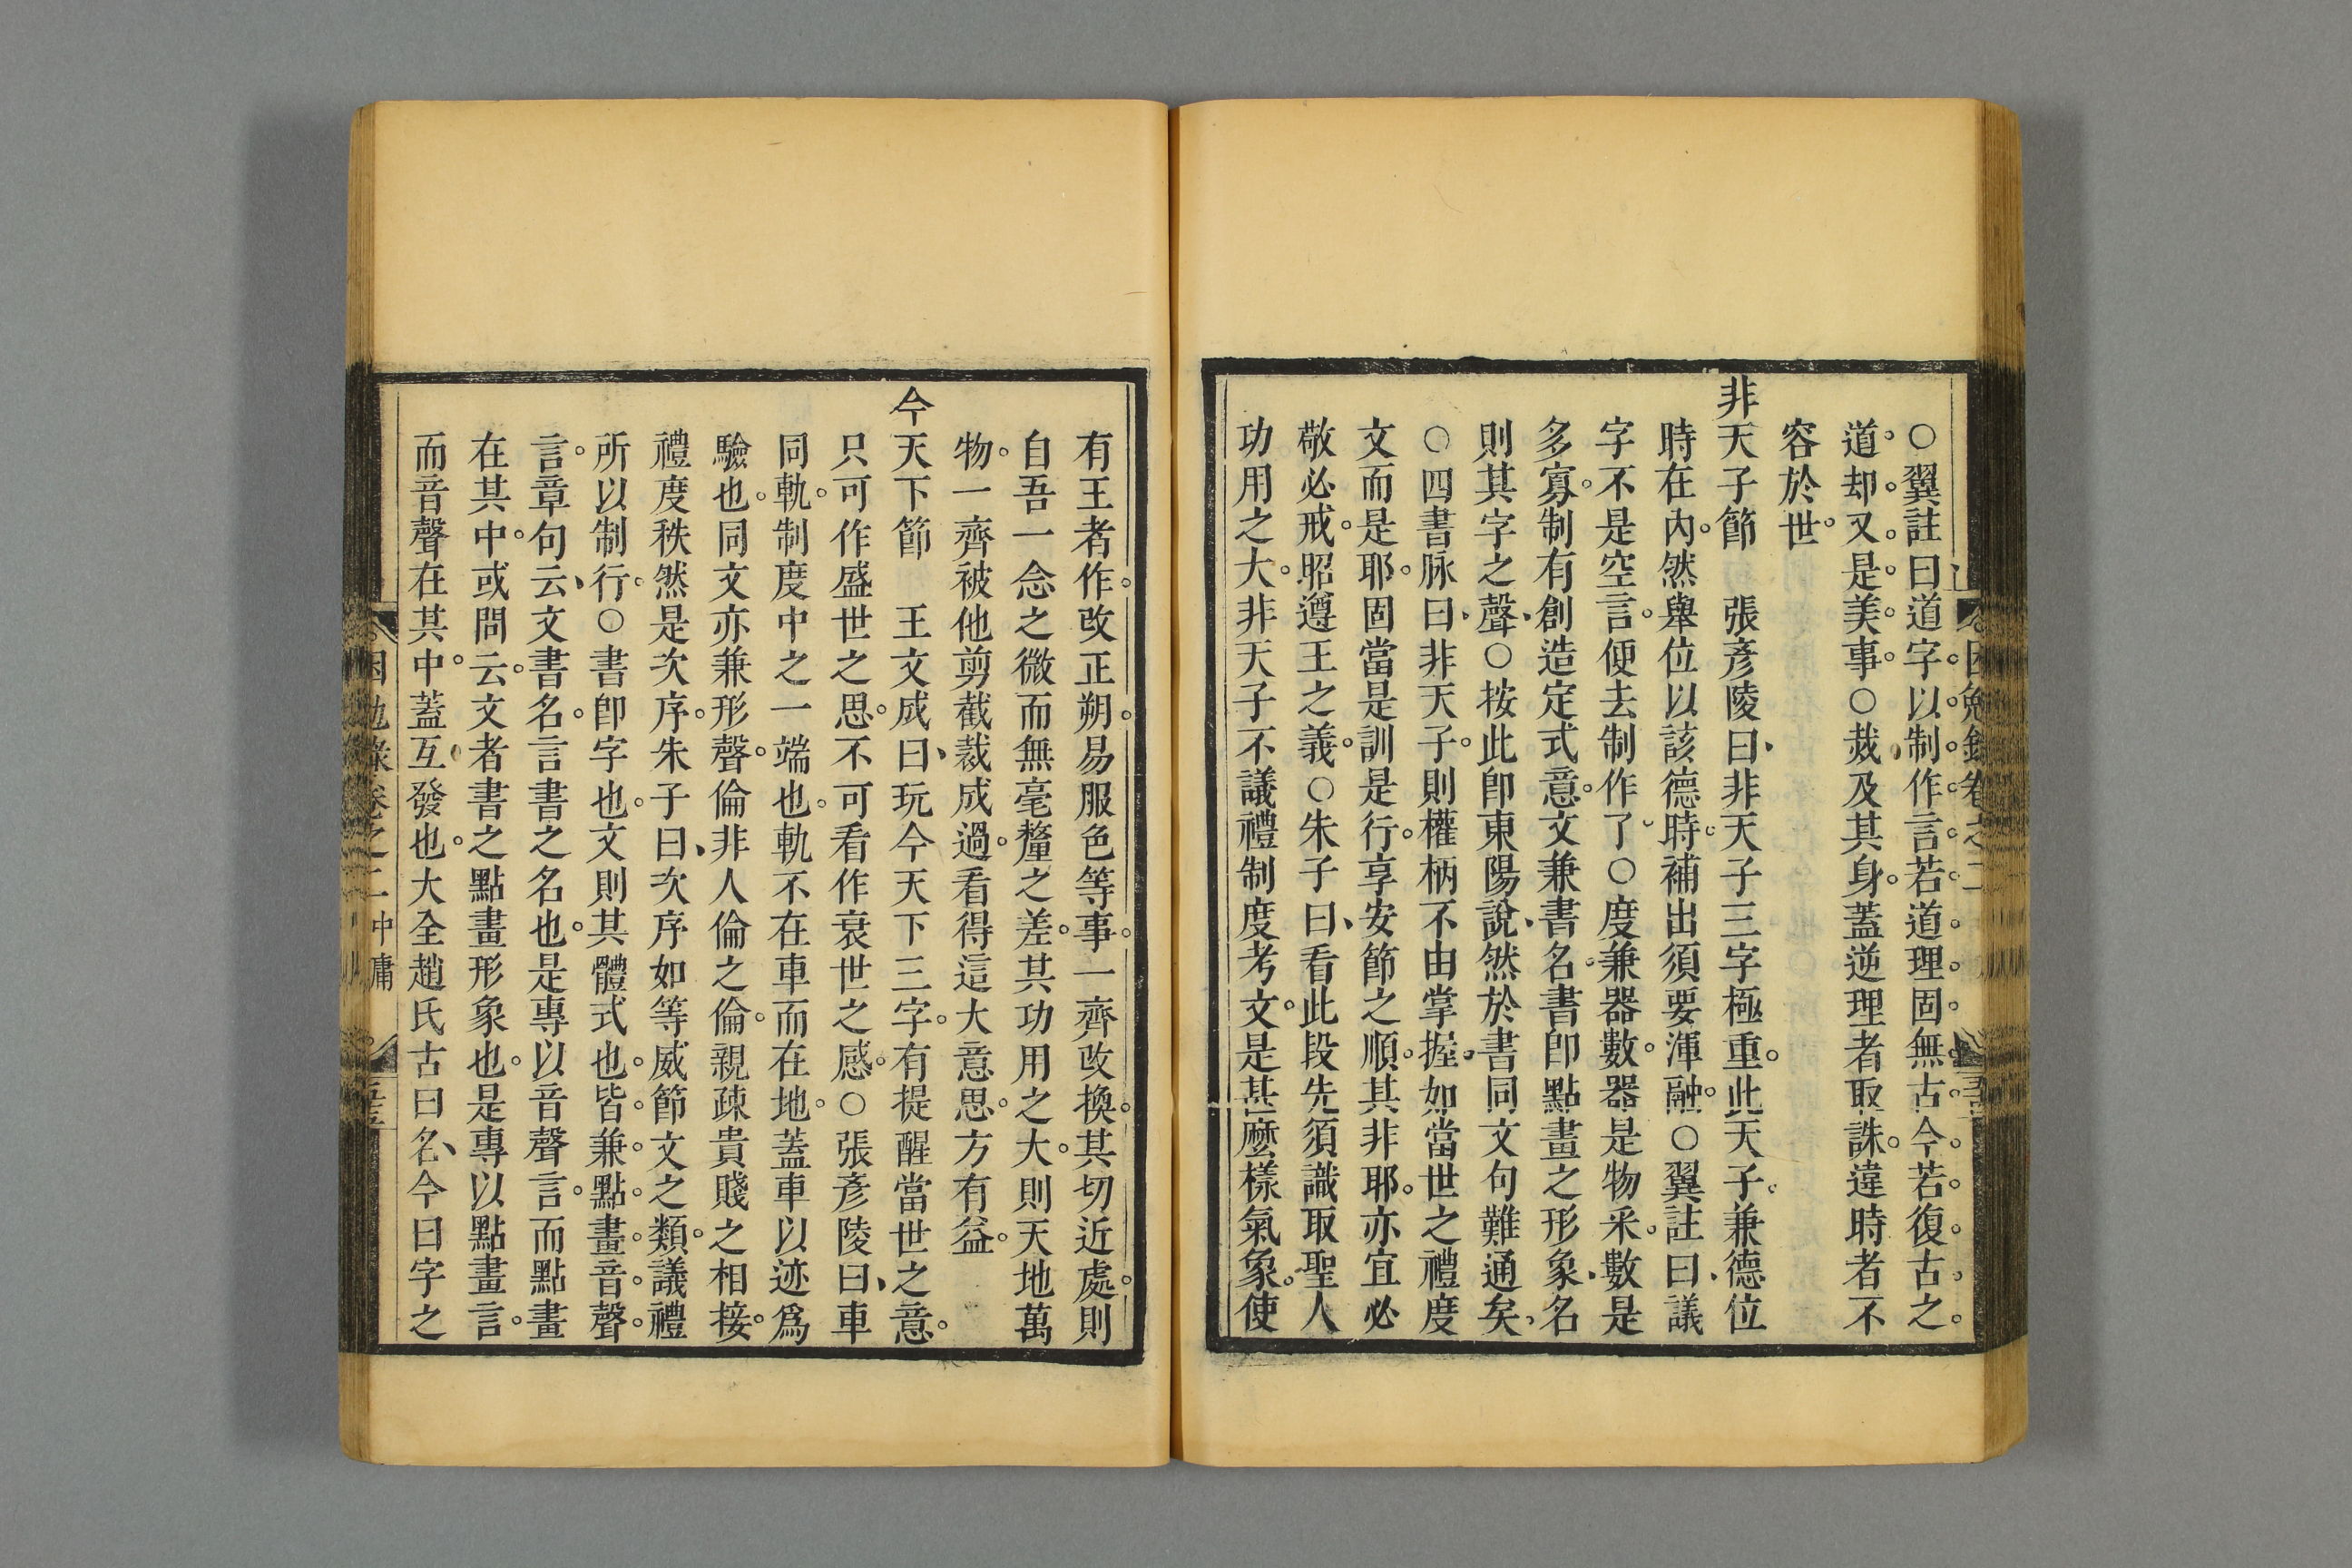 ○翼註曰道字以制作言若道理固無古今若復古之
道却又是美事○烖及其身蓋逆理者取誅違時者不
容於世
非天子節　張彥陵曰非天子三字極重此天子兼德位
時在內然舉位以該德時補出須要渾融○翼註曰議
字不是空言便去制作了○度兼器數器是物采數是
多寡制有創造定式意文兼書名書卽點畫之形象名
則其字之聲○按此卽東陽說然於書同文句難通矣
○四書脉曰非天子則權柄不由掌握如當世之禮度
文而是耶固當是訓是行享安節之順其非耶亦宜必
敬必戒昭遵王之義○朱子曰看此段先須識取聖人
功用之大非天子不議禮制度考文是甚麼樣氣象使
有王者作改正朔易服色等事一齊改換其切近處則
自吾一念之微而無毫釐之差其功用之大則天地萬
物一齊被他剪截裁成過看得這大意思方有益
今天下節　王文成曰玩今天下三字有提醒當世之意
只可作盛世之思不可看作衰世之感○張彥陵曰車
同軌制度中之一端也軌不在車而在地蓋車以迹爲
驗也同文亦兼形聲倫非人倫之倫親疎貴賤之相接
禮度秩然是次序朱子曰次序如等威節文之類議禮
所以制行○書卽字也文則其體式也皆兼點畫音聲
言章句云文書名言書之名也是專以音聲言而點畫
在其中或問云文者書之點畫形象也是專以點畫言
而音聲在其中蓋互發也大全趙氏古曰名今曰字之
困勉錄卷之二中庸